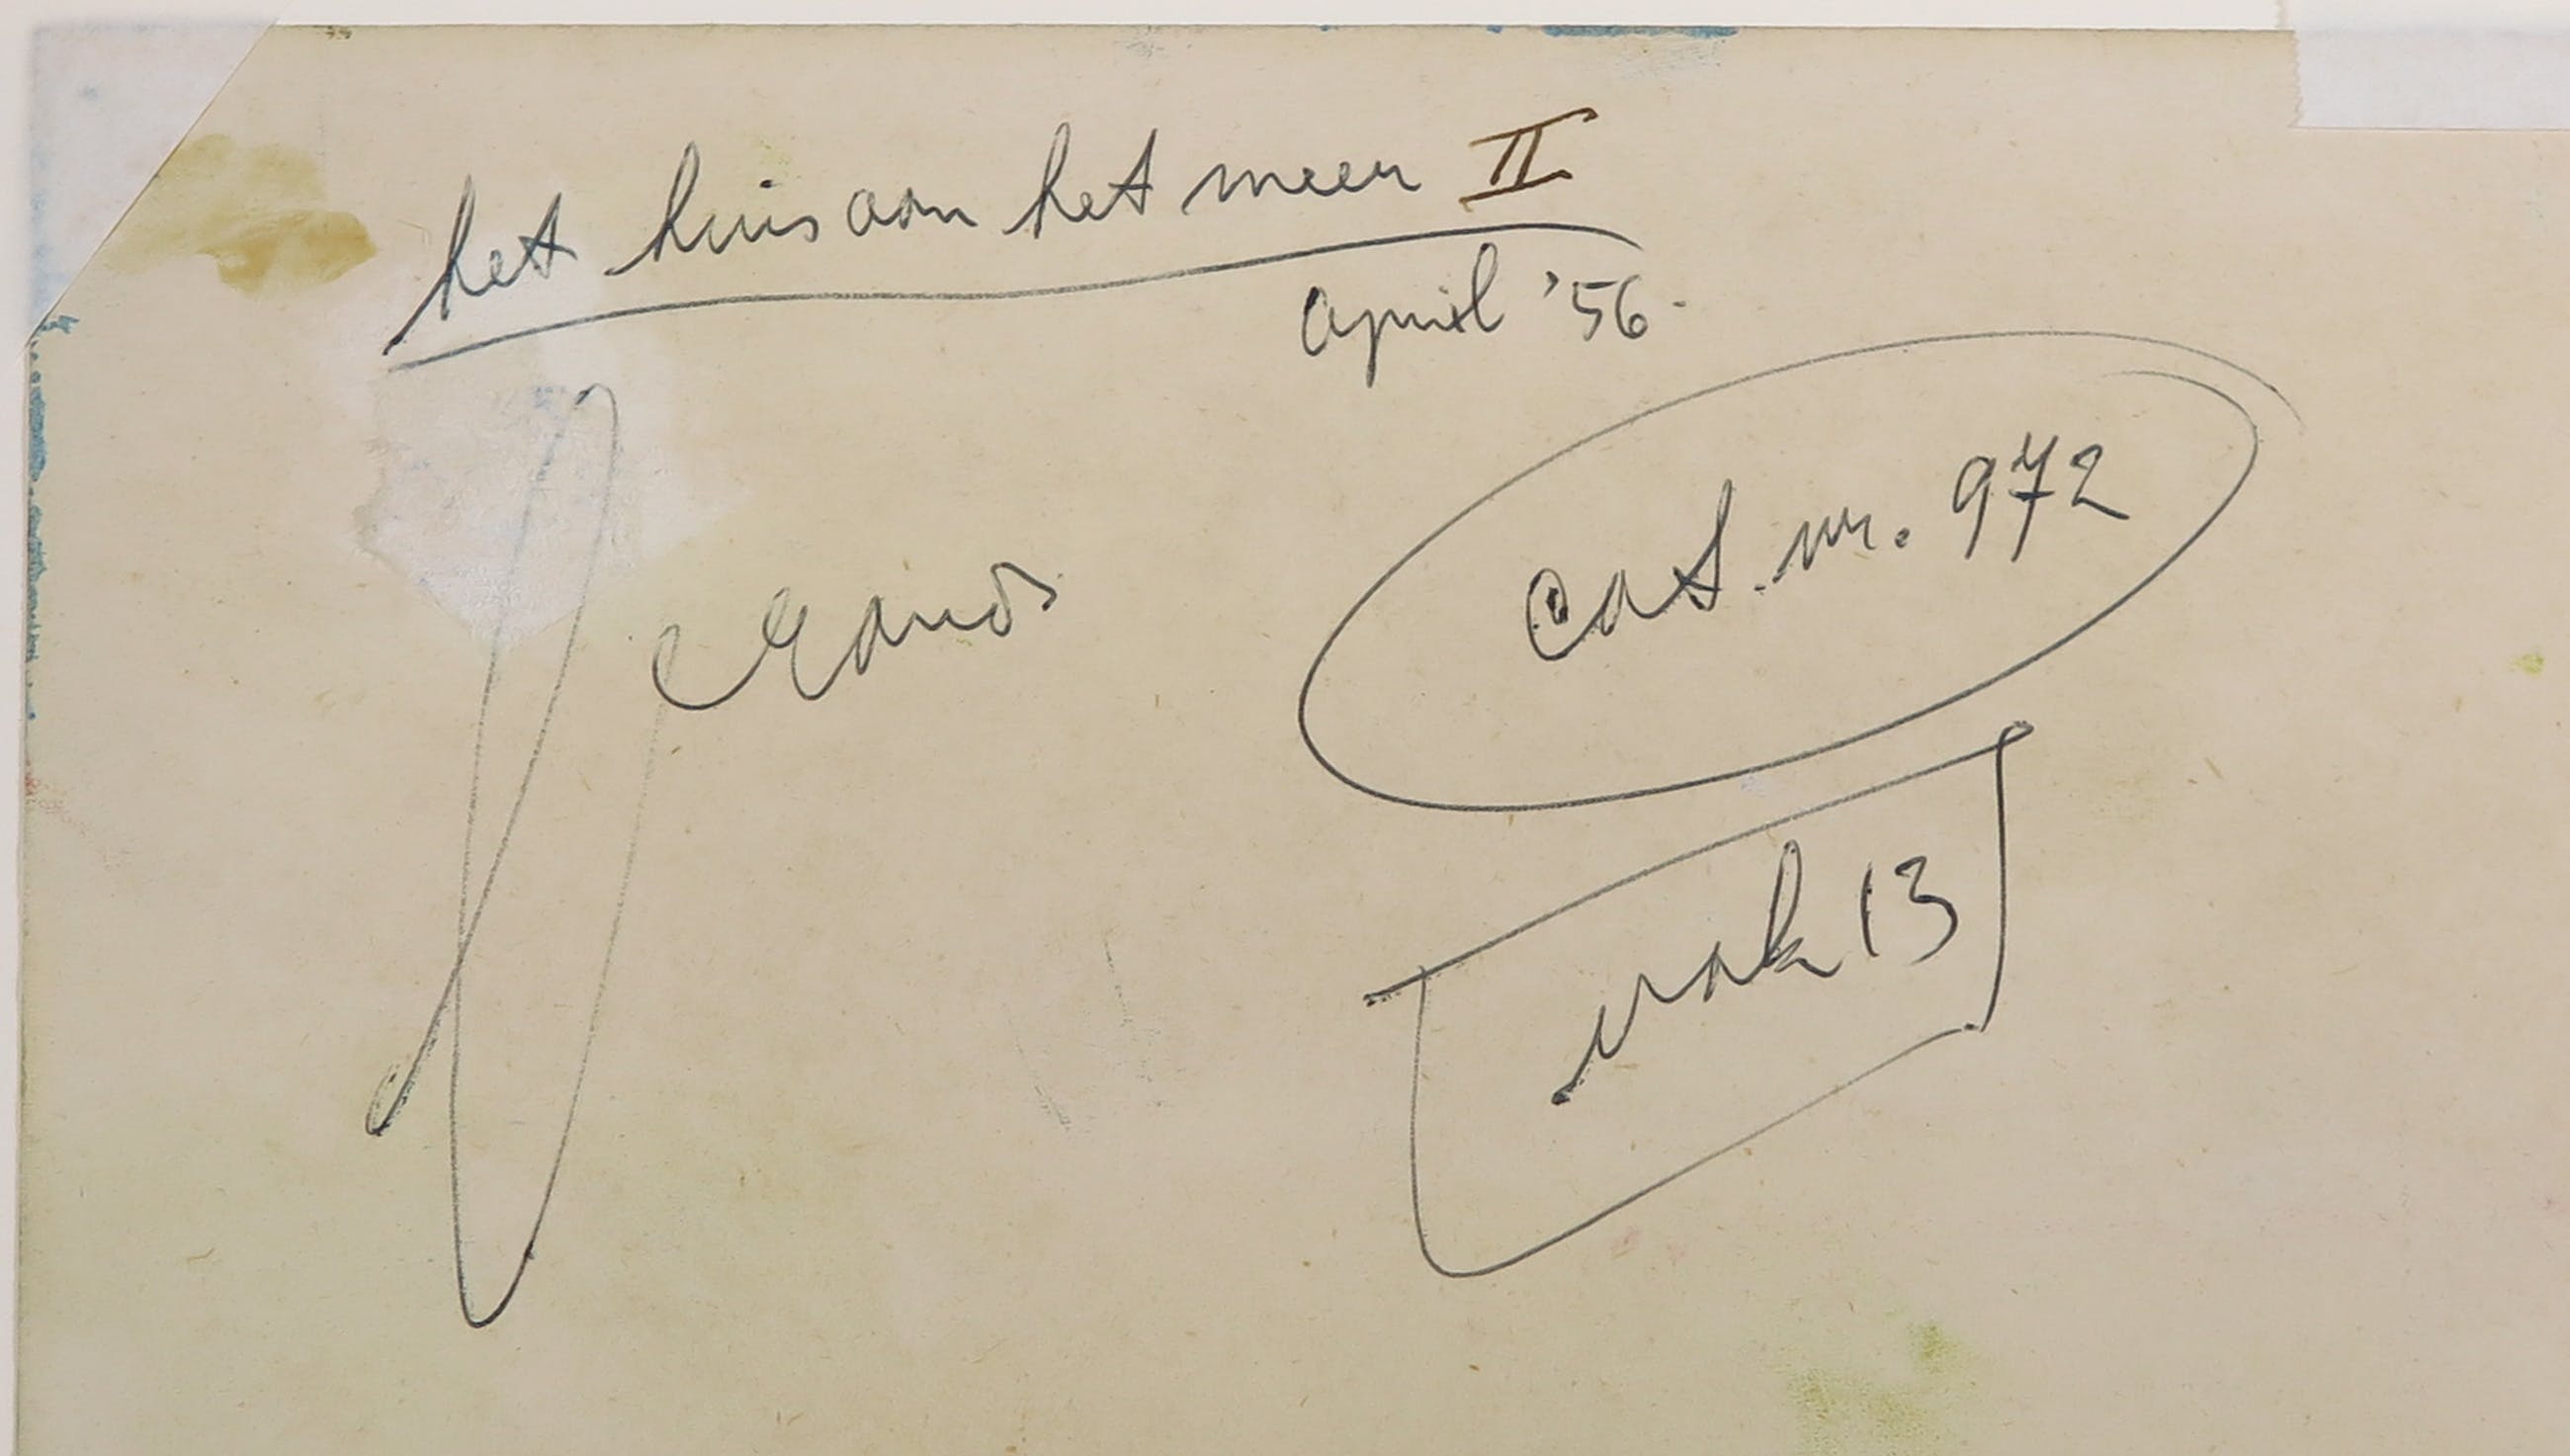 het huis aan het meer II
april '56.
cat. nr. 972
vak 13